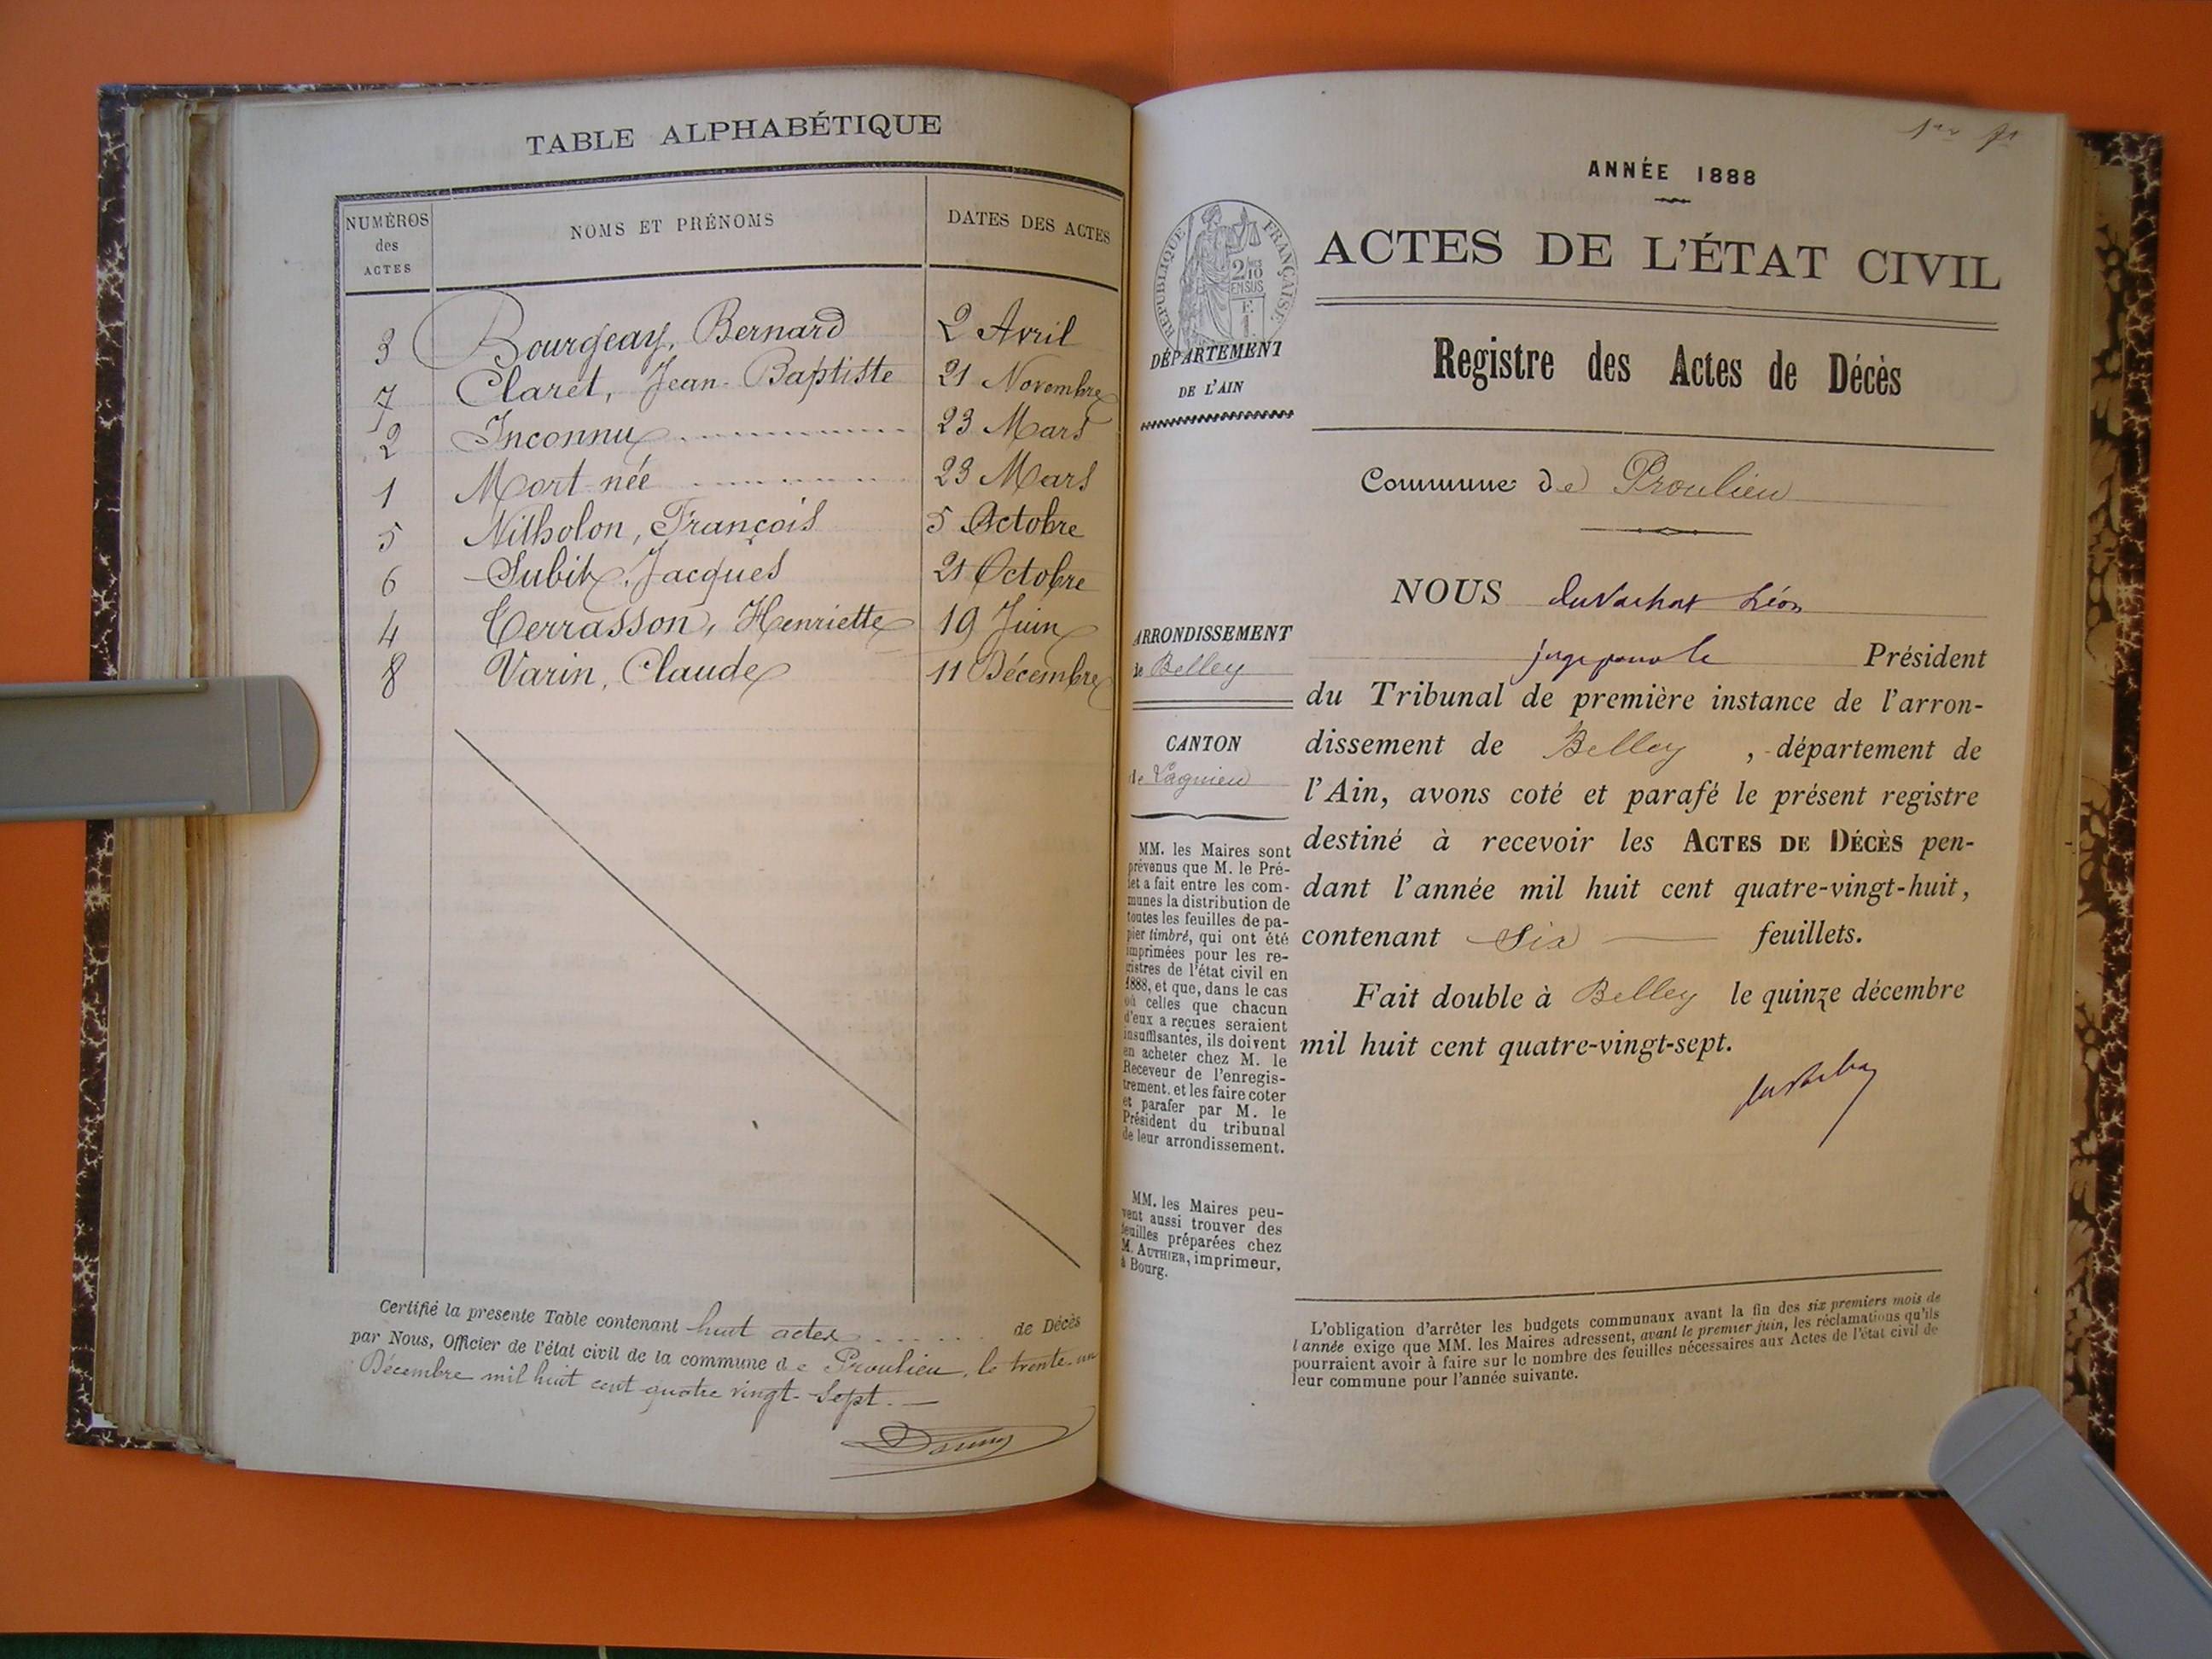 TABLE ALPHABÉTIQUE
NUMÉROS
des
ACTES
NOMS ET PRÉNOMS
DATES DES ACTES
3 Bourgeay, Bernard 2 Avril
7 Claret, Jean-Baptiste 21 Novembre
2 Inconnu 23 Mars
1 Mort-née 23 Mars
5 Nitholon, François 5 Octobre
6 Subit, Jacques 21 Octobre
4 Terrasson, Henriette 19 Juin
8 Varin, Claude 11 Décembre
Certifié la presente Table contenant huit actes de Décès
par Nous, Officier de l'état civil de la commune de Proulieu, le trente-un
Décembre mil huit cent quatre vingt-sept.
ANNÉE 1888
RÉPUBLIQUE FRANÇAISE
2/10
EN SUS
F.
1
ACTES DE L'ÉTAT CIVIL
Registre des Actes de Décès
DÉPARTEMENT
DE L'AIN
Commune de Proulieu
NOUS Léon
juge pour le Président
ARRONDISSEMENT
de Belley
du Tribunal de première instance de l'arron-
dissement de Belley, département de
l'Ain, avons coté et parafé le présent registre
destiné à recevoir les ACTES DE DÉCÈS pen-
dant l'année mil huit cent quatre-vingt-huit,
contenant six feuillets.
Fait double à Belley le quinze décembre
mil huit cent quatre-vingt-sept.
CANTON
de Lagnieu
MM. les Maires sont
prévenus que M. le Pré-
fet a fait entre les com-
munes la distribution de
toutes les feuilles de pa-
pier timbré, qui ont été
imprimées pour les re-
gistres de l'état civil en
1888, et que, dans le cas
où celles que chacun
d'eux a reçues seraient
insuffisantes, ils doivent
en acheter chez M. le
Receveur de l'enregis-
trement, et les faire coter
et parafer par M. le
Président du tribunal
de leur arrondissement.
MM. les Maires peu-
vent aussi trouver des
feuilles préparées chez
M. AUTHIER, imprimeur,
à Bourg.
L'obligation d'arrêter les budgets communaux avant la fin des six premiers mois de
l'année exige que MM. les Maires adressent, avant le premier juin, les réclamations qu'ils
pourraient avoir à faire sur le nombre des feuilles nécessaires aux Actes de l'état civil de
leur commune pour l'année suivante.